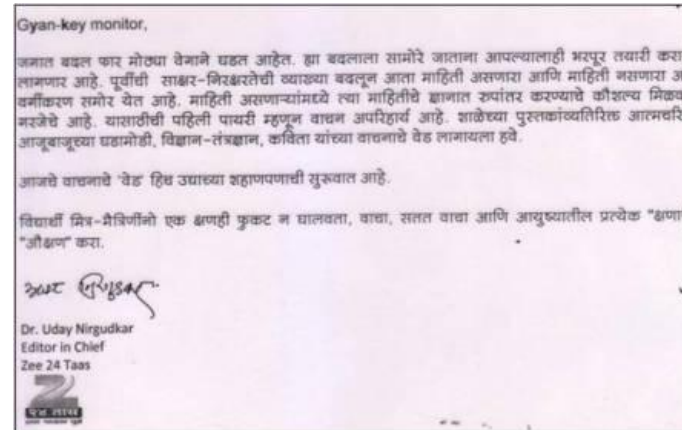 Gyan-key monitor,
जगात बदल फार मोठ्या वेगाने घडत आहेत. ह्या बदलाला सामोरे जाताना आपल्यालाही भरपूर तयारी करा
लागणार आहे. पूर्वीची साक्षर-निरक्षरतेची व्याख्या बदलून आता माहिती असणारा आणि माहिती नसणारा अ
वर्गीकरण समोर येत आहे. माहिती असणाऱ्यांमध्ये त्या माहितीचे ज्ञानात रुपांतर करण्याचे कौशल्य मिळव
गरजेचे आहे. यासाठीची पहिली पायरी म्हणून वाचन अपरिहार्य आहे. शाळेच्या पुस्तकांव्यतिरिक्त आत्मचरि
आजूबाजूच्या घडामोडी, विज्ञान-तंत्रज्ञान, कविता यांच्या वाचनाचे वेड लागायला हवे.
आजचे वाचनाचे 'वेड' हिच उद्याच्या शहाणपणाची सुरूवात आहे.
विद्यार्थी मित्र-मैत्रिणींनो एक क्षणही फुकट न घालवता, वाचा, सतत वाचा आणि आयुष्यातील प्रत्येक "क्षणा
"औक्षण" करा.
उदय निरगुडकर
Dr. Uday Nirgudkar
Editor in Chief
Zee 24 Taas
Z
२४ तास